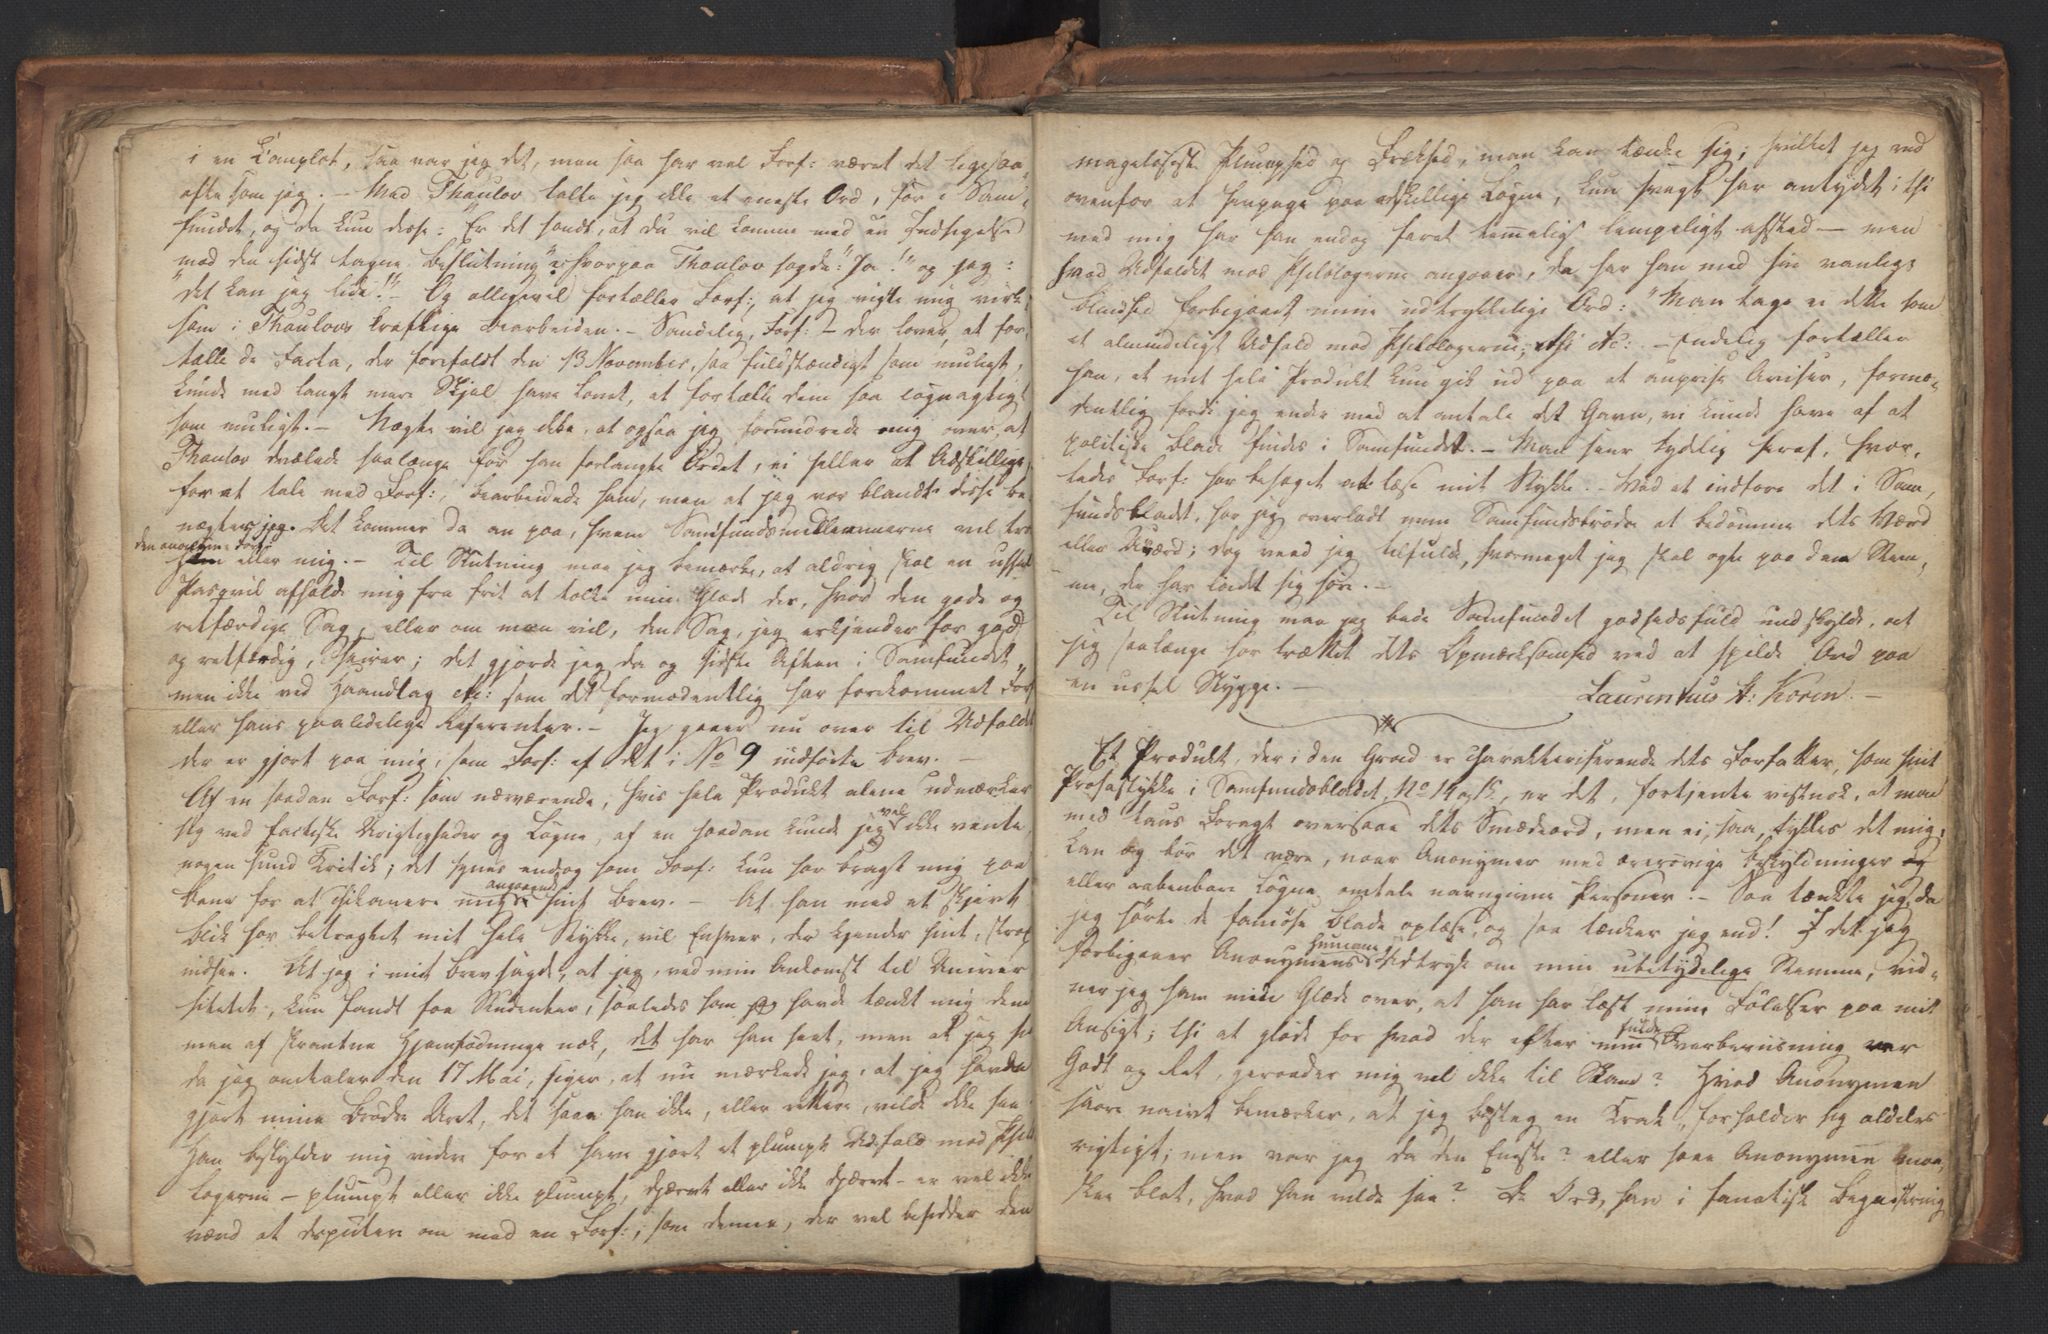 i en Complot, saa var jeg det, men saa har vel Forf: været det ligesaa
ofte som jeg. – Med Thaulov talte jeg ikke et eneste Ord, før i Sam-
fundet, og da kun disse: "Er det sandt, at du vil komme med en Indsigelse
mod den sidst tagne Beslutning"? hvorpaa Thaulov sagde: "Ja!" og jeg:
"det kan jeg lide!" – Og alligevel fortæller Forf:, at jeg viste mig virk-
som i Thaulovs kraftige Bearbeiden. – Sandelig, Forf: – der lover, at for-
tælle de Facta, der forefaldt den 13 November, saa fuldstændigt som muligt,
kunde med langt mere Skjel have lovet, at fortælle dem saa løgnagtigt
som muligt. – Negte vil jeg ikke, at ogsaa jeg forundrede mig over, at
Thaulov dvælede saalænge før han forlangte Ordet, ei heller at Adskillige,
for at tale med Forf:, bearbeidede ham, men at jeg var blandt disse be-
nægter jeg. Det kommer da an paa, hvem Samfundsmedlemmerne vil tro
den anonyme Forf:
eller mig. – Til Slutning maa jeg bemærke, at aldrig skal en ussel
Pasqvil afholde mig fra frit at tolke min Glæde der, hvor den gode og
retfærdige Sag, eller om man vil, den Sag, jeg erkjender for god
og retfærdig, seirer; det gjorde jeg da og sidste Aften i Samfundet,
men ikke ved Haandtag etc: som det formodentlig har forekommet Forf
eller hans paalidelige Referenter. – Jeg gaaer nu over til Udfaldet
der er gjort paa mig, som Forf: af det i No 9 indførte Brev. –
Af en saadan Forf: som nærværende, hvis hele Produkt alene udmærker
sig ved factiske Urigtigheder og Løgne, af en saadan kunde jeg vel ikke vente
nogen sund Kritik; det synes endog som Forf: kun har bragt mig paa
Bane for at chikanere mig angaaende hiint Brev. – At han med et skjevt
Blik har betragtet mit hele Stykke, vil Enhver, der kjender hint, strax
indsee. At jeg i mit Brev sagde, at jeg, ved min Ankomst til Univer
sitetet, kun fandt faa Studenter, saaledes som jeg havde tænkt mig dem
men af skrantne Hjemfødninge nok, det har han seet, men at jeg
da jeg omtaler den 17 Mai, siger, at nu mærkede jeg, at jeg havde
gjort mine Brødre Uret, det saae han ikke, eller rettere, vilde ikke see.
Han beskylder mig videre for at have gjort et plumpt Udfald mod Philo
logerne – plumpt eller ikke plumpt, djærvt eller ikke djærvt – er vel ikke
værd at disputere om med en Forf:, som denne, der vel besidder den
mageløseste Plumphed og Frækhed, man kan tænke sig; hvilket jeg ved
ovenfor at henpege paa adskillige Løgne, kun svagt har antydet; thi
med mig har han endog faret temmelig lempeligt afsted – men
hvad Udfaldet mod Philologerne angaaer, da har han med sin vanlige
Blindhed forbigaaet mine udtrykkelige Ord: "Man tage ei dette som
et almindeligt Udfald mod Philologerne; thi etc: – Endelig fortæller
han, at mit hele Produkt kun gik ud paa at anprise Aviser, formo-
dentlig fordi jeg ender med at omtale det Gavn, vi kunde have af at
politiske Blade findes i Samfundet. – Man seer tydelig heraf, hvor-
ledes Forf: har behaget at læse mit Stykke. – Ved at indføre det i Sam-
fundsbladet, har jeg overladt mine Samfundsbrødre at bedømme dets Værd
eller Uværd; dog veed jeg tilfulde, hvormeget jeg skal agte paa den Stem-
me, der har ladet sig høre. –
Til Slutning maa jeg bede Samfundet godhedsfuld undskylde, at
jeg saalænge har trættet dets Opmærksomhed ved at spilde Ord paa
en ussel Skygge. –
Laurentius Koren. –
Et Produkt, der i den Grad er charakteriserende dets Forfatter, som hiint
Prosastykke i Samfundsbladet, No 14 og 15, er det, fortjente vistnok, at man
med taus Foragt oversaae dets Smædeord, men ei saa, tykkes det mig,
kan og bør det være, naar Anonymer med ærerørige Beskyldninger
eller aabenbare Løgne omtale navngivne Personer. – Saa tænkte jeg, da
jeg hørte de famøse Blade oplæse, og saa tænker jeg end! I det jeg
forbigaaer Anonymens humane Udtryk om min ubetydelige Stemme, vid-
ner jeg ham min Glæde over, at han har læst mine Følelser paa mit
Ansigt; thi at glæde for hvad der efter min fulde Overbeviisning var
Godt og Ret, geraader mig vel ikke til Skam? Hvad Anonymen
saare naivt bemærker, at jeg besteg en Krak, forholder sig aldeles
rigtigt; men var jeg da den Eneste? eller saae Anonymen maa-
skee blot, hvad han vilde see? De Ord, han i fanatisk Begeistring